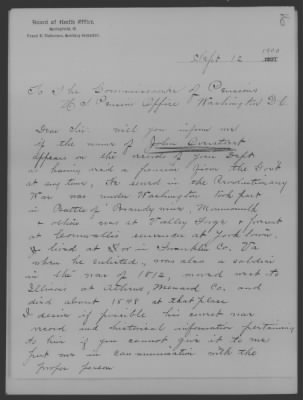 Board of Health Office,
Springfield, Ill.
Sept 12 1900
To The Commissioner of Pensions
U S Pension Office Washington D.C.
Dear Sir. will you inform me
if the name of John Constant
appears on the records of your Dept
as having rec'd a pension from the Gov't
at any time, He served in the Revolutionary
War was under Washington took part
in Battle of Brandywine, Monmouth
& others was at Valley Forge & present
at Cornwallis surrender at York town.
& lived at & or in Franklin Co. Va
when he enlisted, was also a soldier
in the war of 1812, moved west to
Illinois at Athens, Menard Co. and
died about 1848 at that place
I desire if possible his correct war
record and historical information pertaining
to him if you cannot give it to me
put me in communication with the
proper person